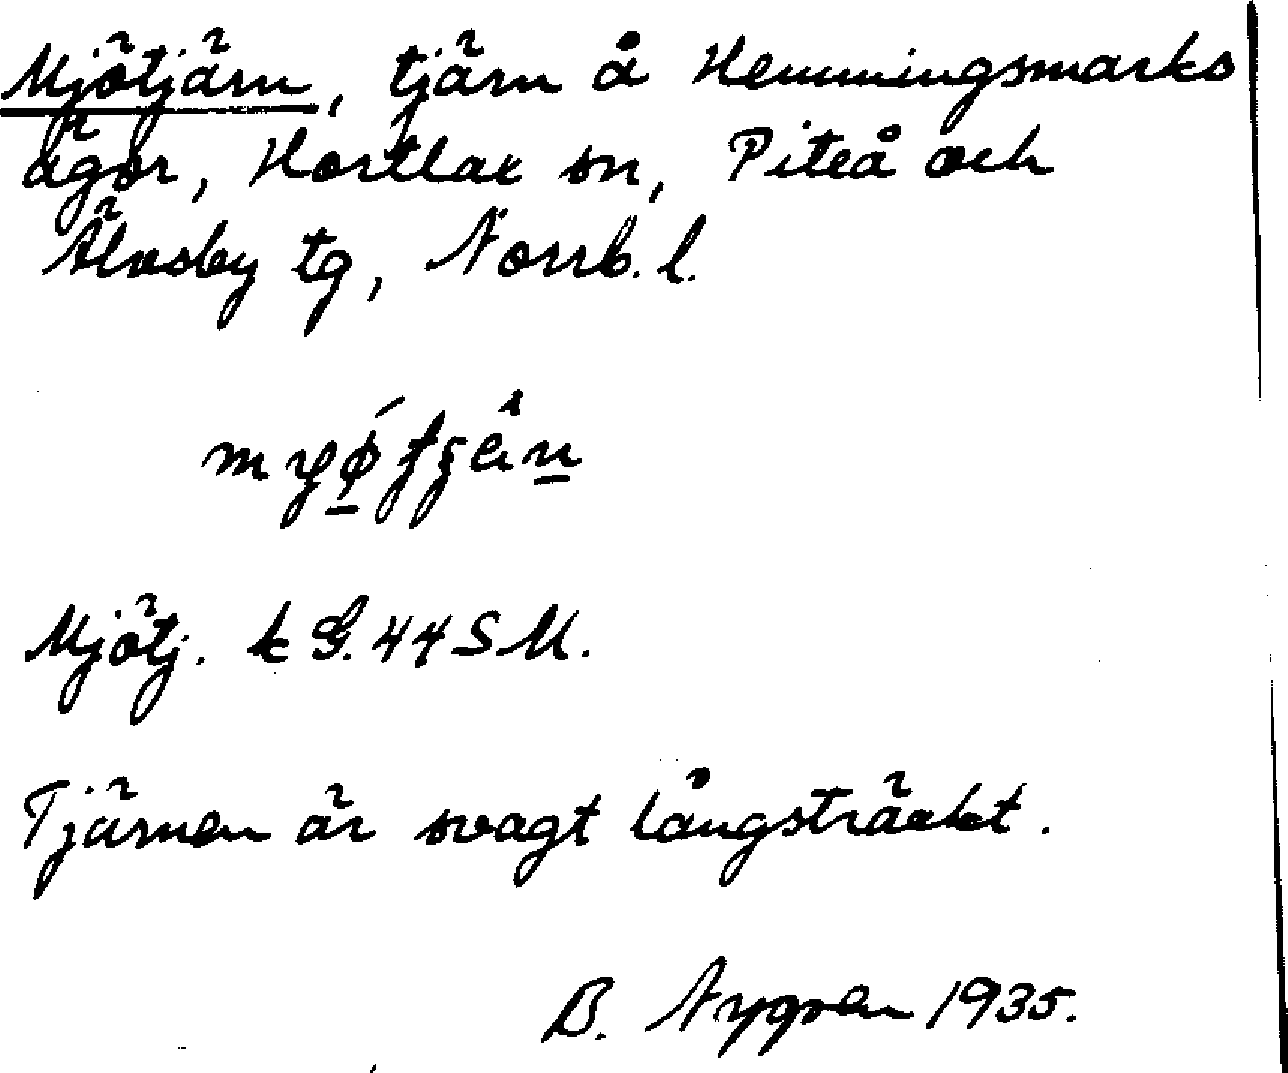 Mjötjärn, tjärn å Hemmingsmarks
ägor, Hortlax sn, Piteå och
Älvsby tg, Norrb. l.
Mjötj. k G. 44 S M.
Tjärnen är svagt långsträckt.
B. Nygren 1935.